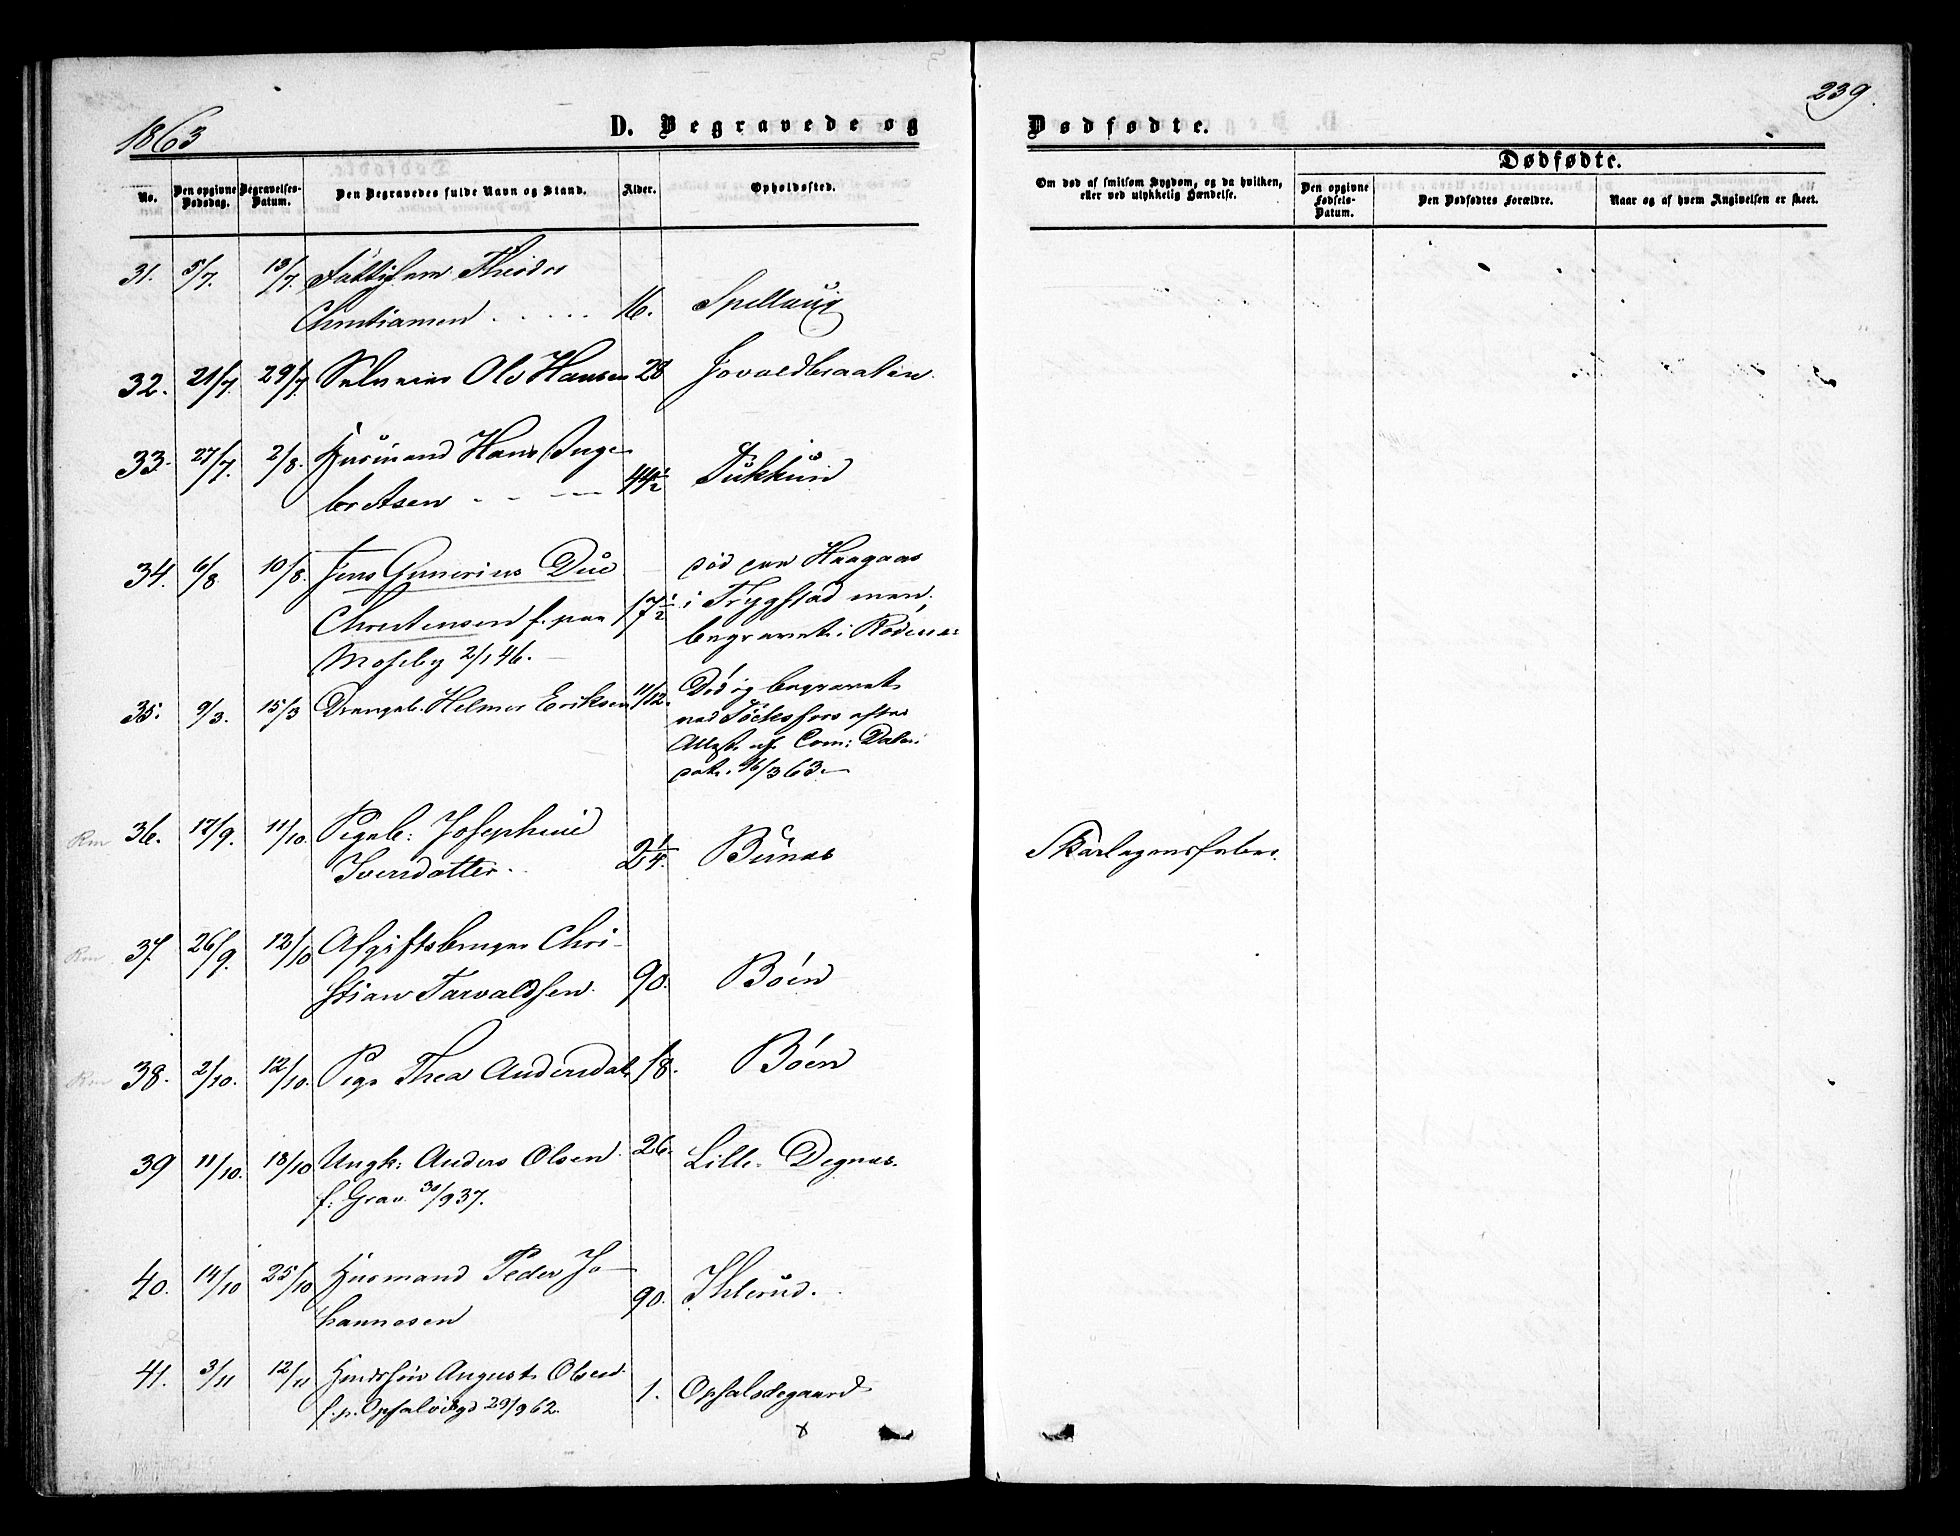 1863
D. Begravede og
Dødfødte.
239.
No.
Den opgivne Dødsdag.
Begravelses-Datum.
Den Begravedes fulde Navn og Stand.
Alder.
Opholdssted.
Om død af smitsom Sygdom, og da hvilken, eller ved ulykkelig Hændelse.
Dødfødte.
Den opgivne Fødsels-Datum.
Den Dødfødtes Forældre.
Naar og af hvem Angivelsen er skeet.
31. 5/7. 13/7. Fattiglem Theodor
Christiansen . . . . . 16. Spellaug
32. 21/7. 29/7. Selveier Ole Hansen 28
33. 27/7. 2/8. Husmand Hans Inge-
bretsen - - - 44½ Tukkun
34. 6/8. 10/8. Jens Gunerius Due død paa Haagaas
Christensen f. paa 17½ i Trygstad men
begravet i Rødenæs
Moseby 2/1 46.
35. 9/3. 15/3 Drengeb. Helmer Eriksen 11/12. Død og begravet
ved Töcksfors efter
Attest af Com: Dale:
dat. 16/3 63.
Rm 36. 17/9. 11/10. Pigeb: Josephine
Iversdatter. 2¼. Bunæs Skarlagensfeber.
Rm 37. 26/9. 12/10 Afgiftsbruger Chri-
stian Tarvaldsen. 90. Böen
Rm 38. 2/10. 12/10. Pige Thea Andersdat. 18. Böen
39 11/10. 18/10 Ungk: Anders Olsen 26. Lille Degnæs.
f: Grav. 30/9 37.
40. 14/10 25/10 Husmand Peder Jo-
hannesen 90. Ihlerud.
41. 3/11 12/11 August Olsen
29/9 62. 1. Opsalsdegaard
x